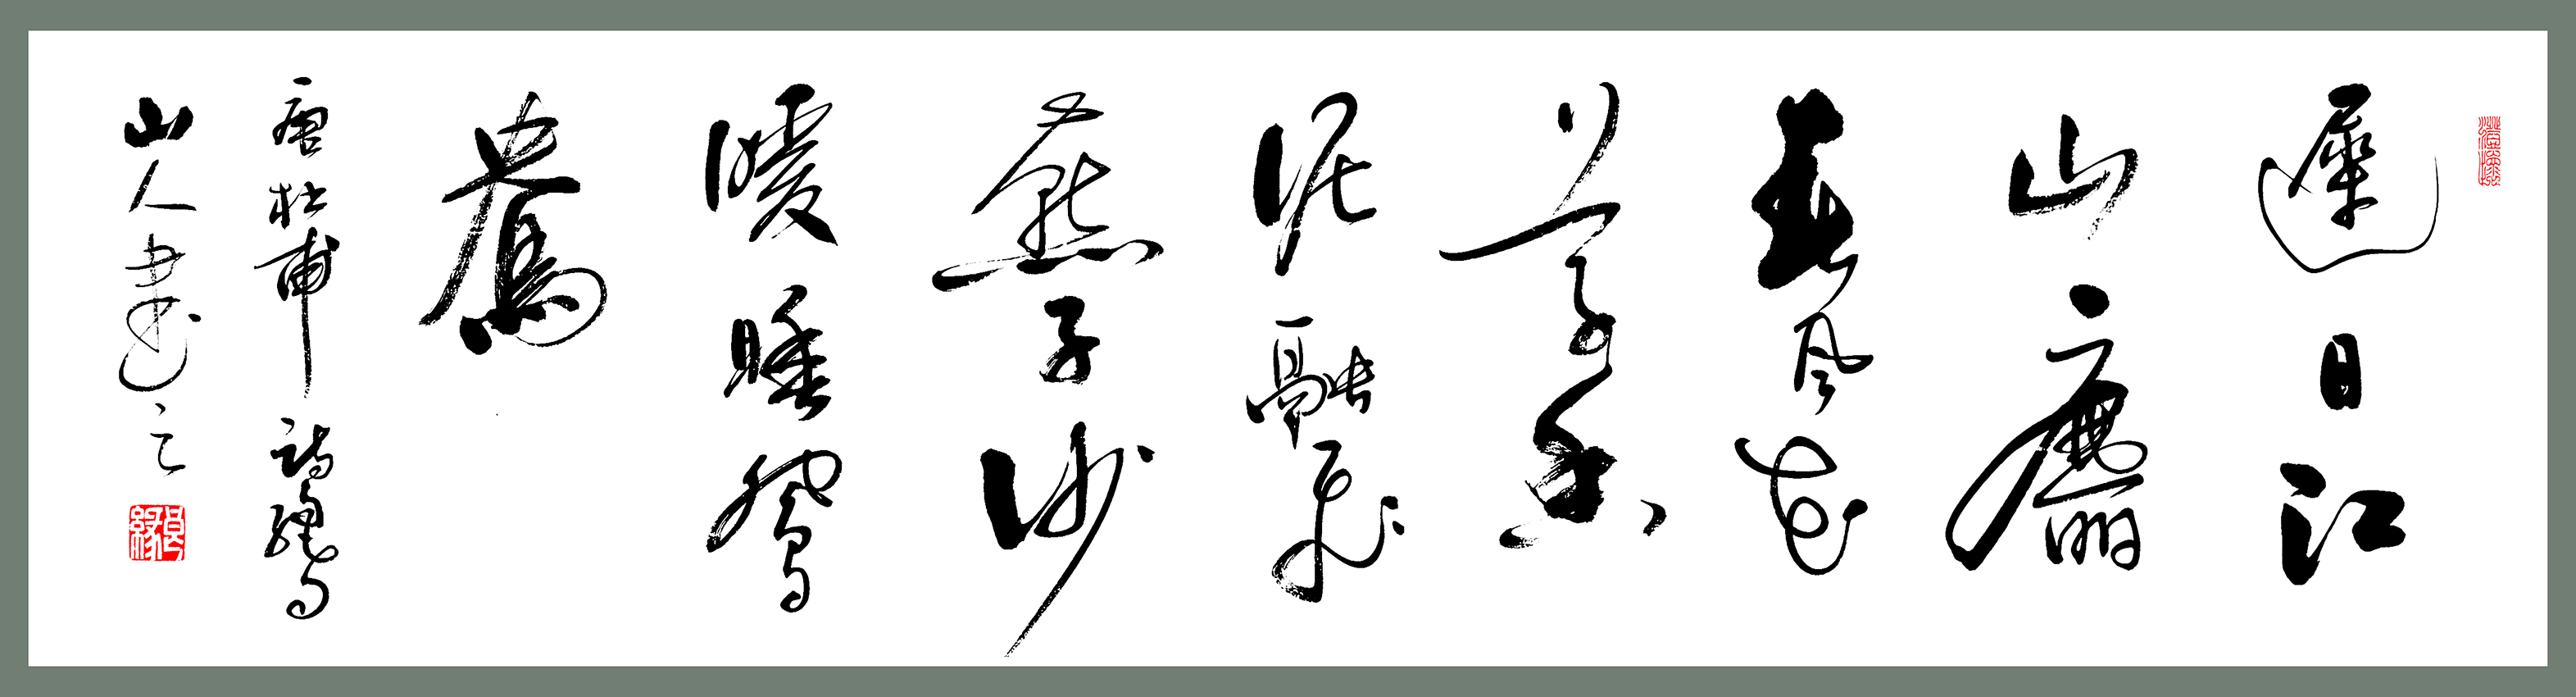 遲日江
山麗
春風花
草香
泥融飛
燕子沙
暖睡鴛
鴦
唐杜甫詩
山人書之